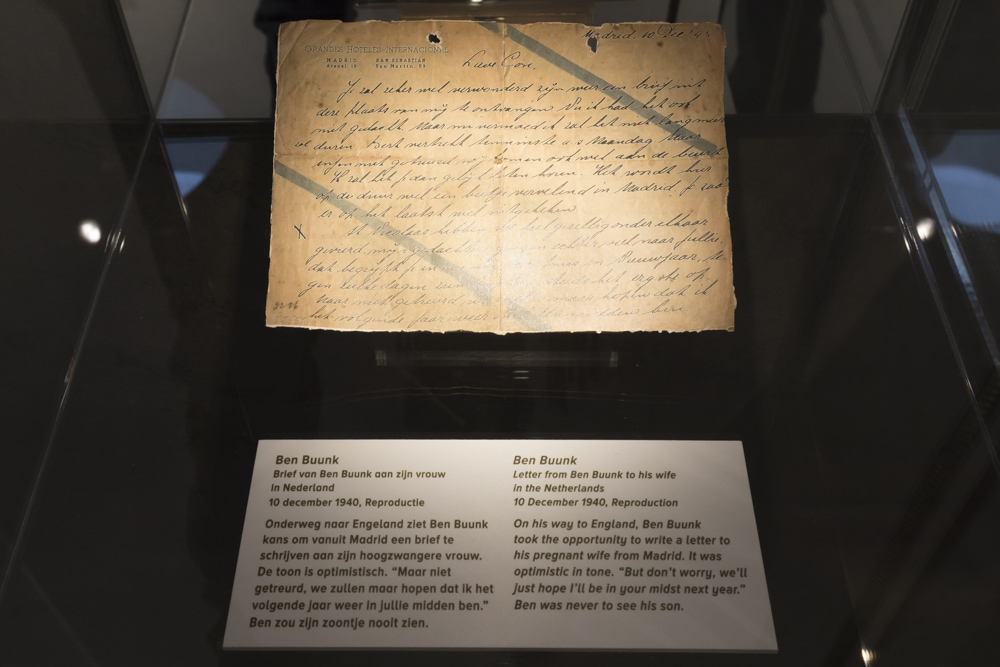 Madrid. 10 Dec
GRANDES HOTELES-INTERNACIONAL
MADRID SAN SEBASTIÁN
Arenal 19 San Martin, 33
Lieve Core,
Je zal zeker wel verwonderd zijn weer een brief uit
deze plaats van mij te ontvangen. Ik had het ook
niet gedacht. Maar nu vermoed ik zal het niet lang meer
duren. Bert vertrekt tenminste a.s. Maandag
enfin niet getreurd wij komen ook wel aan de beurt
Ik zal het je dan gelijk laten horen. Het wordt hier
op de duur wel een beetje vervelend in Madrid. Je
er op het laatst wel uitgekeken
St Nicolaas hebben we heel gezellig onder elkaar
gevierd, mijn gedachte gingen echter wel naar jullie.
dat begrijp je
gen zulke dagen het ergste op.
Maar niet getreurd maar hopen dat ik
het volgende jaar weer in midden ben
Ben Buunk
Brief van Ben Buunk aan zijn vrouw
in Nederland
10 december 1940, Reproductie
Onderweg naar Engeland ziet Ben Buunk
kans om vanuit Madrid een brief te
schrijven aan zijn hoogzwangere vrouw.
De toon is optimistisch. “Maar niet
getreurd, we zullen maar hopen dat ik het
volgende jaar weer in jullie midden ben.”
Ben zou zijn zoontje nooit zien.
Ben Buunk
Letter from Ben Buunk to his wife
in the Netherlands
10 December 1940, Reproduction
On his way to England, Ben Buunk
took the opportunity to write a letter to
his pregnant wife from Madrid. It was
optimistic in tone. “But don’t worry, we’ll
just hope I’ll be in your midst next year.”
Ben was never to see his son.